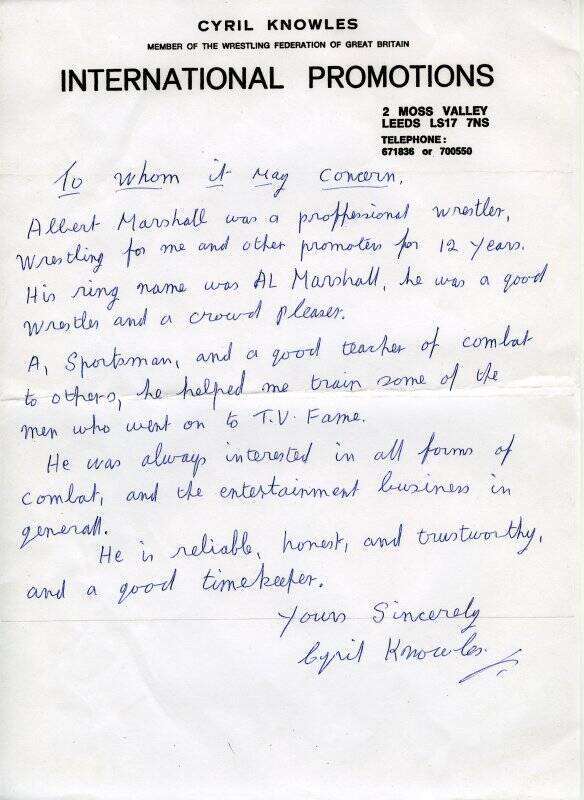 CYRIL KNOWLES
MEMBER OF THE WRESTLING FEDERATION OF GREAT BRITAIN
INTERNATIONAL PROMOTIONS
2 MOSS VALLEY
LEEDS LS17 7NS
TELEPHONE:
671836 or 700550
To whom it may concern,
Albert Marshall was a proffessional wrestler,
Wrestling for me and other promoters for 12 years.
His ring name was AL Marshall, he was a good
Wrestler and a crowd pleaser.
A, Sportsman, and a good teacher of combat
to others, he helped me train some of the
men who went on to T.V. Fame.
He was always interested in all forms of
combat, and the entertainment business in
generall.
He is reliable, honest, and trustworthy,
and a good timekeeper.
Yours Sincerely
Cyril Knowles.